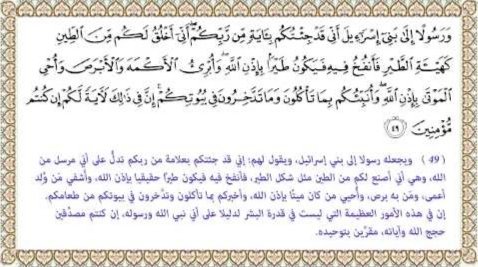 وَرَسُولًا إِلَىٰ بَنِىٓ إِسْرَٰٓءِيلَ أَنِّى قَدْ جِئْتُكُم بِـَٔايَةٍ مِّن رَّبِّكُمْ أَنِّىٓ أَخْلُقُ لَكُم مِّنَ ٱلطِّينِ
كَهَيْـَٔةِ ٱلطَّيْرِ فَأَنفُخُ فِيهِ فَيَكُونُ طَيْرًۢا بِإِذْنِ ٱللَّهِ وَأُبْرِئُ ٱلْأَكْمَهَ وَٱلْأَبْرَصَ وَأُحْىِ
ٱلْمَوْتَىٰ بِإِذْنِ ٱللَّهِ وَأُنَبِّئُكُم بِمَا تَأْكُلُونَ وَمَا تَدَّخِرُونَ فِى بُيُوتِكُمْ إِنَّ فِى ذَٰلِكَ لَـَٔايَةً لَّكُمْ إِن كُنتُم
مُّؤْمِنِينَ ٤٩
(49) ويجعله رسولا إلى بني إسرائيل، ويقول لهم: إني قد جئتكم بعلامة من ربكم تدلُّ على أني مرسل من
الله، وهي أني أصنع لكم من الطين مثل شكل الطير، فأنفخ فيه فيكون طيرًا حقيقيا بإذن الله، وأشفي مَن وُلِد
أعمى، ومَن به برص، وأُحيي من كان ميتًا بإذن الله، وأخبركم بما تأكلون وتدَّخرون في بيوتكم من طعامكم.
إن في هذه الأمور العظيمة التي ليست في قدرة البشر لدليلا على أني نبي الله ورسوله، إن كنتم مصدِّقين
حجج الله وآياته، مقرِّين بتوحيده.